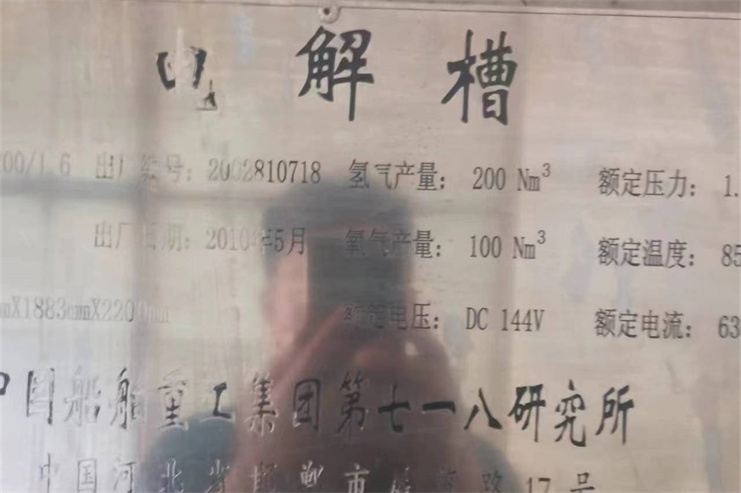 电解槽
00/1.6 出厂编号: 2002810718 氢气产量: 200 Nm³ 额定压力: 1.
出厂日期: 2010年5月 氧气产量: 100 Nm³ 额定温度: 85
mX1883mmX2200mm 额定电压: DC 144V 额定电流: 63
中国船舶重工集团第七一八研究所
中国河北省邯郸市 路17号